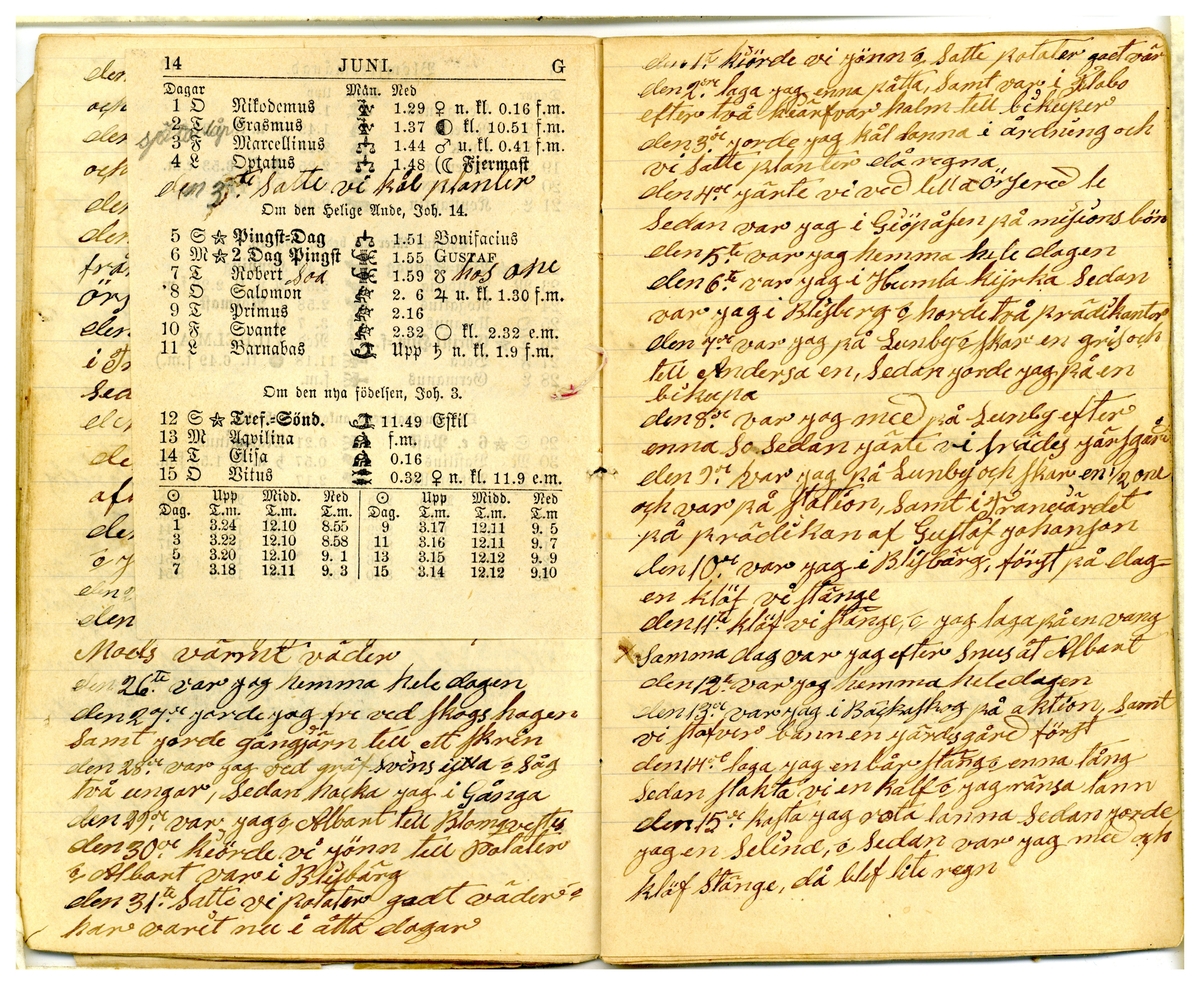 14 JUNI. G
Dagar Mån. Ned
1 O Nikodemus 1.29 ♀ n. kl. 0.16 f.m.
2 T Erasmus 1.37 kl. 10.51 f.m.
3 F Marcellinus 1.44 ♂ u. kl. 0.41 f.m.
4 L Optatus 1.48 (☾ Fjermast
den 3die Satte vi kål planter
Om den Helige Ande, Joh. 14.
5 S Pingst-Dag 1.51 Bonifacius
6 M 2 Dag Pingst 1.55 GUSTAF
7 T Robert 1.59 ☋ hos one
8 O Salomon 2. 6 ♃ u. kl. 1.30 f.m.
9 T Primus 2.16
10 F Svante 2.32 ○ kl. 2.32 e.m.
11 L Barnabas Upp ♄ n. kl. 1.9 f.m.
Om den nya födelsen, Joh. 3.
12 S Tref.-Sönd. 11.49 Eskil
13 M Aqvilina f.m.
14 T Elisa 0.16
15 O Vitus 0.32 ♀ n. kl. 11.9 e.m.
☉ Upp Midd. Ned ☉ Upp Midd. Ned
Dag. T.m. T.m. T.m. Dag. T.m. T.m. T.m
1 3.24 12.10 8.55 9 3.17 12.11 9. 5
3 3.22 12.10 8.58 11 3.16 12.11 9. 7
5 3.20 12.10 9. 1 13 3.15 12.12 9. 9
7 3.18 12.11 9. 3 15 3.14 12.12 9.10
värmt väder
den 26te var jag hemma hele dagen
den 27de jorde jag fre ved skogs hagen
Samt jorde gångjärn till ett skrin
den 28de var jag ved gräf svins o såg
två ungar, Sedan hacka jag i Gånga
den 29de var jag o Albart till Blomqvistes
den 30de kiörde vi jönn till potater
o Albart var i Blijbärg
den 31te Satte vi potater gadt väder e
har varit nu i åtta dagar
den 1te kiörde vi jönn o, Satte potater gadt vär
den 2dre laga jag enna råtta, Samt var i Klabo
efter två kiärfvar halm till bikuper
den 3de jorde jag kål lanna i årdning och
vi Satte planter då regna
den 4de järte vi ved till a örsered le
Sedan var jag i Giöpåsen på misions bön
den 5te var jag hemma hele dagen
den 6te var jag i Humla kijrka Sedan
var jag i Blijberg o horde trå prädikanter
den 7de var jag på Lunby o skar en gris och
till Andersa en, Sedan jorde jag på en
bikupa
den 8de var jag med på Lunby efter
enna So Sedan järte vi trädes järsgård
den 9de var jag på Lunby och skar en 1/2 one
och var på station, Samt i Tranvärdet
på prädikan af Gustaf johanson
den 10de var jag i Blijbärg, först på dag=
en kläf vi stänge
den 11te kläf vi stänge, o jag laga på en vang
Samma dag var jag efter Snus åt Albart
den 12te var jag hemma hele dagen
den 13de var jag i Bäckaskog på aktion, Samt
vi stafver bannen järdsgård först
den 14de laga jag en bår stång o enna tång
Sedan slakta vi en kalf o jag ränsa lann
den 15de kasta jag rota lanna Sedan jorde
jag en Selinc, o Sedan var jag med och
kläf Stänge, då blef lite regn